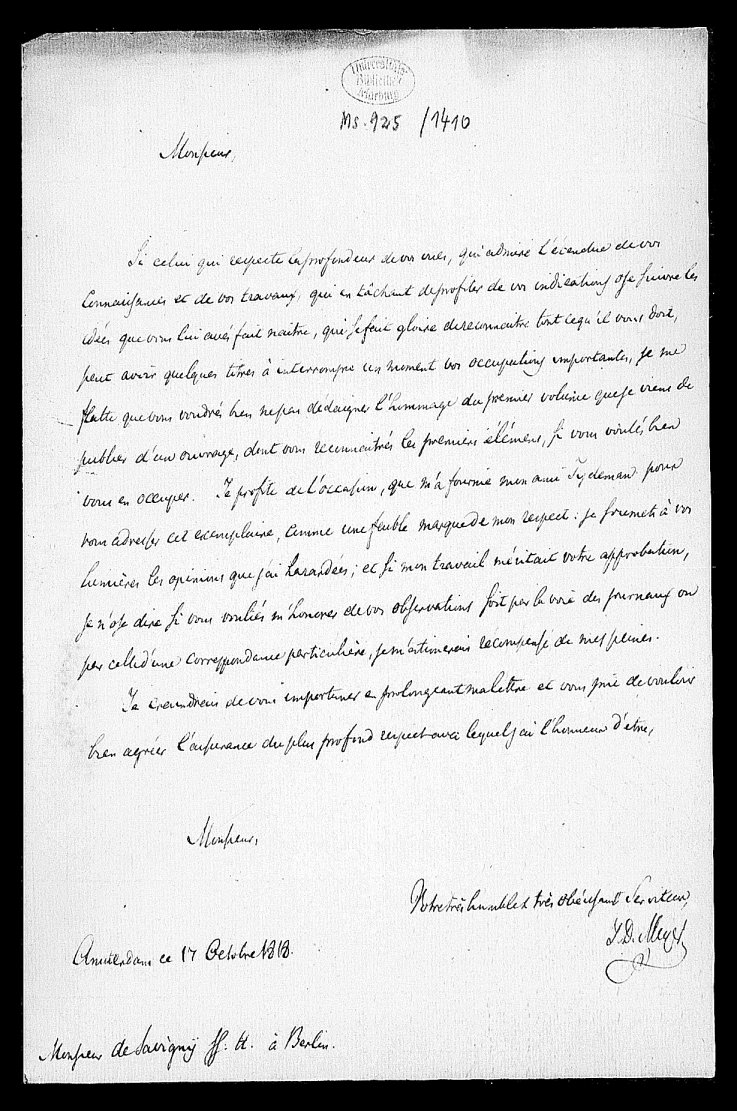 Universitäts-
Bibliothek
Marburg
Ms. 925 /1410
Monsieur,
Si celui qui respecte la profondeur de vos vues, qui admire l'étendue de vos
connaissances et de vos travaux, qui en tâchant de profiter de vos indications ose suivre les
idées que vous lui avés fait naitre, qui se fait gloire de reconnaitre tout ce qu'il vous doit,
peut avoir quelques titres à interrompre un moment vos occupations importantes, je me
flatte que vous voudrés bien ne pas dédaigner l'hommage du premier volume que je viens de
publier d'un ouvrage, dont vous reconnaitrés les premiers élémens, si vous voulés bien
vous en occuper. Je profite de l'occasion, que m'a fournie mon ami Tydeman pour
vous adresser cet exemplaire, comme une faible marque de mon respect: je soumets à vos
lumières les opinions que j'ai hazardées; et si mon travail méritait votre approbation,
je n'ose dire si vous vouliés m'honorer de vos observations soit par la voie des journaux ou
par celle d'une correspondance particulière, je m'estimerais recompensé de mes peines.
Je craindrais de vous importuner en prolongeant ma lettre et vous prie de vouloir
bien agréer l'assurance du plus profond respect avec lequel j'ai l'honneur d'etre,
Monsieur,
Votre très humble & très obéissant Serviteur,
J.D. Meyer
Amsterdam ce 17 Octobre 1818.
Monsieur de Savigny à Berlin.